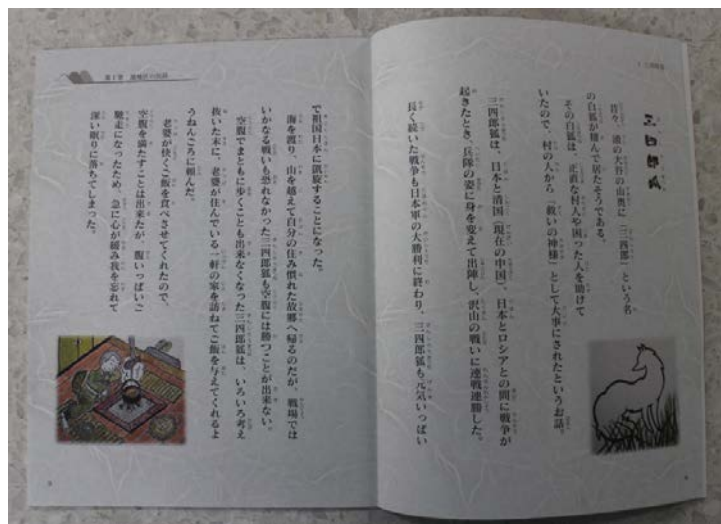 三四郎狐
昔々、浦の大谷の山奥に「三四郎」という名
の白狐が棲んで居たそうである。
その白狐は、正直な村人や困った人を助けて
いたので、村の人から「救いの神様」として大事にされたというお話。
三四郎狐は、日本と清国（現在の中国）、日本とロシアとの間に戦争が
起きたとき、兵隊の姿に身を変えて出陣し、沢山の戦いに連戦連勝した。
長く続いた戦争も日本軍の大勝利に終わり、三四郎狐も元気いっぱい
で祖国日本に凱旋することになった。
海を渡り、山を越えて自分の住み慣れた故郷へ帰るのだが、戦場では
いかなる戦いも恐れなかった三四郎狐も空腹には勝つことが出来ない。
空腹でまともに歩くことも出来なくなった三四郎狐は、いろいろ考え
抜いた末に、老婆が住んでいる一軒の家を訪ねてご飯を与えてくれるよ
うねんごろに頼んだ。
老婆が快くご飯を食べさせてくれたので、
空腹を満たすことは出来たが、腹いっぱいご
馳走になったため、急に心が緩み我を忘れて
深い眠りに落ちてしまった。